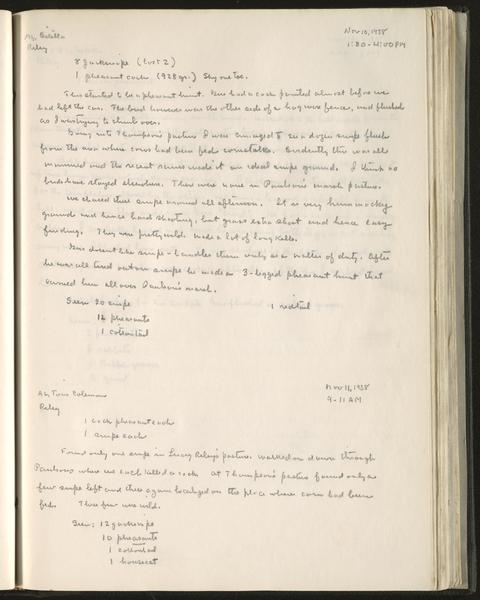 Nov 10, 1938
AL, Estella
1:30-4:00 PM
Riley
8 jacksnipe (lost 2)
1 pheasant cock (928 gr.) Shy one toe.
This started to be a pheasant hunt. Gus had a cock pointed almost before we
had left the car. The bird however was the other side of a hog wire fence, and flushed
as I was trying to climb over.
Going into Thompson's pasture I was amazed to see a dozen snipe flush
from the area where cows had been fed cornstalks. Evidently this was all
manured and the recent rains made it an ideal snipe ground. I think no
birds have stayed elsewhere. There were none in Paulson's marsh pasture.
We chased these snipe around all afternoon. It is very hummocky
ground and hence hard shooting, but grass extra short and hence easy
finding. They were pretty wild. Made a lot of long kills.
Gus doesn't like snipe - handles them only as a matter of duty. After
he was all tired out on snipe he made a 3-legged pheasant hunt that
carried him all over Paulson's marsh.
Seen 20 snipe
1 redtail
12 pheasants
1 cottontail
Nov 11, 1938
AL, Tom Coleman
9-11 AM
Riley
1 cock pheasant each
1 snipe each
Found only one snipe in Lucy Riley's pasture. Worked on down through
Paulsons where we each killed a cock. At Thompson's pasture found only a
few snipe left and these again localized on the place where corn had been
fed. These few were wild.
Seen: 12 jacksnipe
10 pheasants
1 cottontail
1 housecat